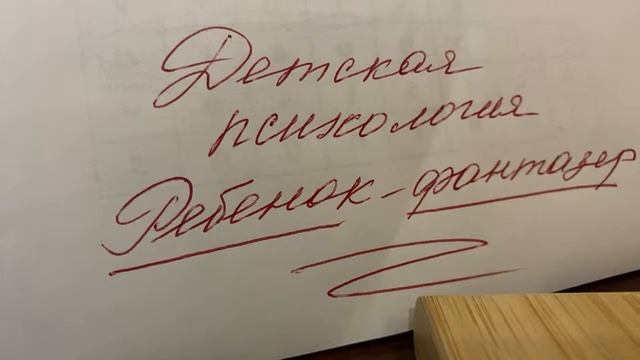 Детская
психология
Ребенок-фантазер